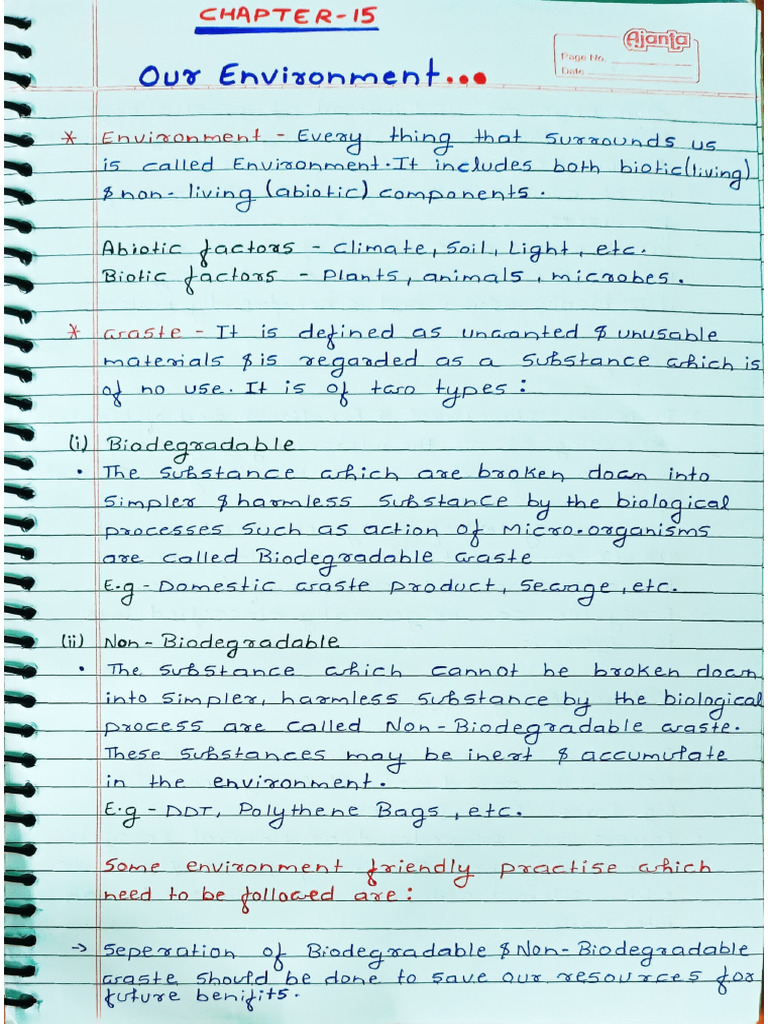 CHAPTER-15
Ajanta
Page No.
Date
Our Environment...
* Environment - Every thing that surrounds us
is called Environment. It includes both biotic(living)
& non-living (abiotic) components.
Abiotic factors - Climate, Soil, Light, etc.
Biotic factors - Plants, animals, microbes.
* Waste - It is defined as unwanted & unusable
materials & is regarded as a substance which is
of no use. It is of two types:
(i) Biodegradable
• The substance which are broken down into
simpler & harmless substance by the biological
processes such as action of micro-organisms
are called Biodegradable waste
E.g - Domestic waste product, Sewage, etc.
(ii) Non-Biodegradable
• The substance which cannot be broken down
into simpler, harmless substance by the biological
process are called Non-Biodegradable waste.
These substances may be inert & accumulate
in the environment.
E.g - DDT, Polythene Bags, etc.
Some environment friendly practise which
need to be followed are:
→ Seperation of Biodegradable & Non-Biodegradable
waste should be done to save our resources for
future benifits.